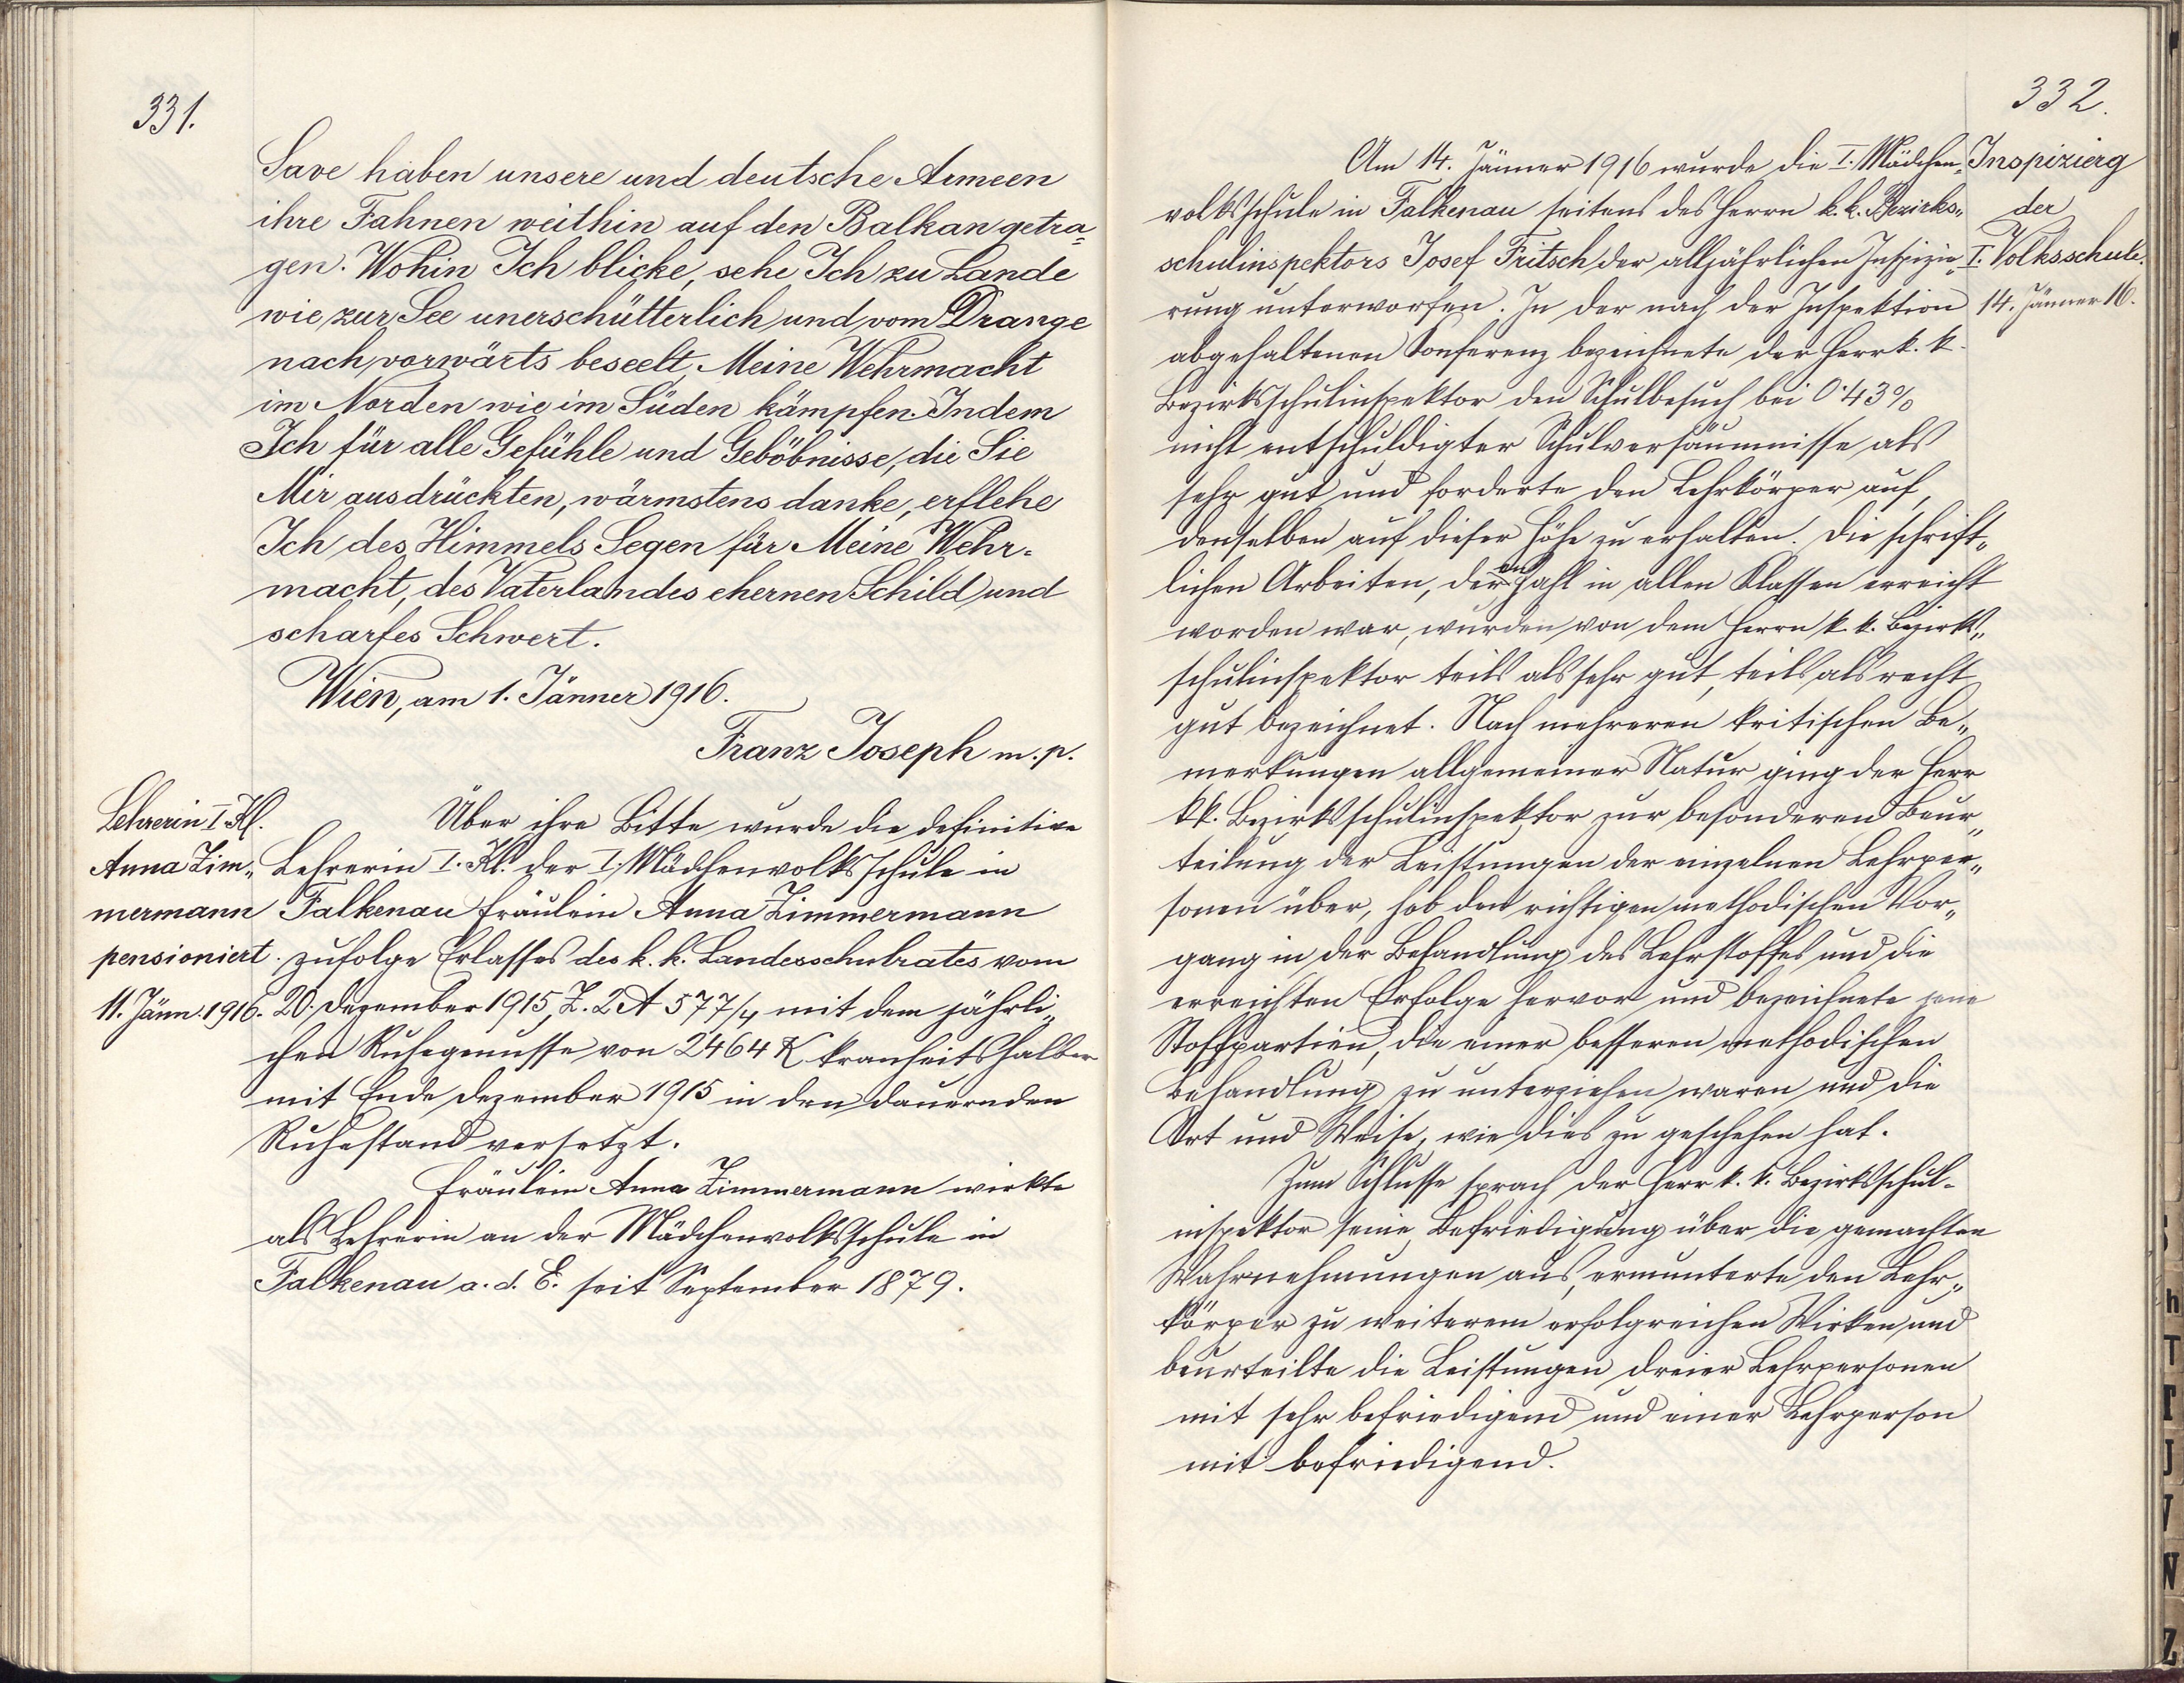 331.
Save haben unsere und deutsche Armeen
ihre Fahnen weithin auf den Balkan getra=
gen. Wohin Ich blicke, sehe Ich zu Lande
wie zur See unerschütterlich und vom Drange
nach vorwärts beseelt, Meine Wehrmacht
im Norden wie im Süden kämpfen. Indem
Ich für alle Gefühle und Geböbnisse, die Sie
Mir ausdrückten, wärmstens danke, erflehe
Ich des Himmels Segen für Meine Wehr-
macht, des Vaterlandes ehernen Schild und
scharfes Schwert.
Wien, am 1. Jänner 1916.
Franz Joseph m. p.
Lehrerin I. Kl.
Anna Zim„
mermann
pensioniert.
11. Jänn. 1916.
Über ihre Bitte wurde die definitive
Lehrerin I. Kl. der I. Mädchenvolksschule in
Falkenau Fräulein Anna Zimmermann
zufolge Erlasses des k. k. Landesschulrates vom
20. Dezember 1915, Z. 2 A 577/4 mit dem jährli„
chen Ruhegenusse von 2464 K krankeitshalber
mit Ende Dezember 1915 in den dauernden
Ruhestand versetzt.
Fräulein Anna Zimmermann wirkte
als Lehrerin an der Mädchenvolksschule in
Falkenau a. d. E. seit September 1879.
332.
Inspizierg
der
I. Volksschule.
14. Jänner 16.
Am 14. Jänner 1916 wurde die I. Mädchen„
volksschule in Falkenau seitens des Herrn k. k. Bezirks„
schulinspektors Josef Fritsch der alljährlichen Inspizie„
rung unterworfen. In der nach der Inspektion
abgehaltenen Konferenz bezeichnete der Herr k. k.
Bezirksschulinspektor den Schulbesuch bei 0·43%
nicht entschuldigter Schulversäumnisse als
sehr gut und forderte den Lehrkörper auf,
denselben auf dieser Höhe zu erhalten. Die schrift„
lichen Arbeiten, deren Zahl in allen Klassen erreicht
worden war, wurden von dem Herrn k. k. Bezirks„
schulinspektor teils als sehr gut, teils als recht
gut bezeichnet. Nach mehreren kritischen Be„
merkungen allgemeiner Natur ging der Herr
k k. Bezirksschulinspektor zur besonderen Beur„
teilung der Leistungen der einzelnen Lehrper„
sonen über, hob den richtigen methodischen Vor„
gang in der Behandlung des Lehrstoffes und die
erreichten Erfolge hervor und bezeichnete jene
Stoffpartien, die einer besseren methodischen
Behandlung zu unterziehen waren und die
Art und Weise, wie dies zu geschehen hat.
Zum Schlusse sprach der Herr k. k. Bezirksschul-
inspektor seine Befriedigung über die gemachten
Wahrnehmungen aus, ermunterte den Lehr„
körper zu weiterem erfolgreichen Wirken und
beurteilte die Leistungen dreier Lehrpersonen
mit sehr befriedigend und einer Lehrperson
mit befriedigend.
h
T
P
J
V
W
Z